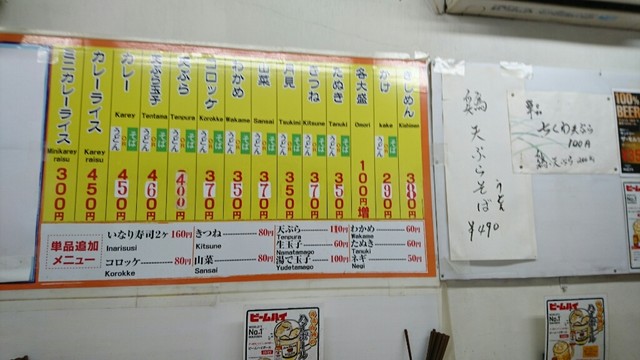 きしめん
Kishimen
380円
かけ
kake
そば
うどん
290円
各大盛
Omori
100円増
たぬき
Tanuki
そば
うどん
350円
きつね
Kitsune
そば
うどん
370円
月見
Tsukimi
そば
うどん
350円
山菜
Sansai
そば
うどん
370円
わかめ
Wakame
そば
うどん
350円
コロッケ
Korokke
そば
うどん
370円
天ぷら
Tenpura
そば
うどん
400円
天ぷら玉子
Tentama
そば
うどん
460円
カレー
Karey
そば
うどん
450円
カレーライス
Karey raisu
450円
ミニカレーライス
Minikarey raisu
300円
単品追加
メニュー
いなり寿司2ヶ 160円
Inarisusi
コロッケ 80円
Korokke
きつね 80円
Kitsune
山菜 80円
Sansai
天ぷら 110円
Tenpura
生玉子 60円
Namatamago
湯で玉子 100円
Yudetamago
わかめ 60円
Wakame
たぬき 60円
Tanuki
ネギ 50円
Negi
天ぷらそば
うどん
¥490
単品
ちくわ天ぷら
100円
100
BEER
ビームハイ
No.1
ビームハイ
No.1